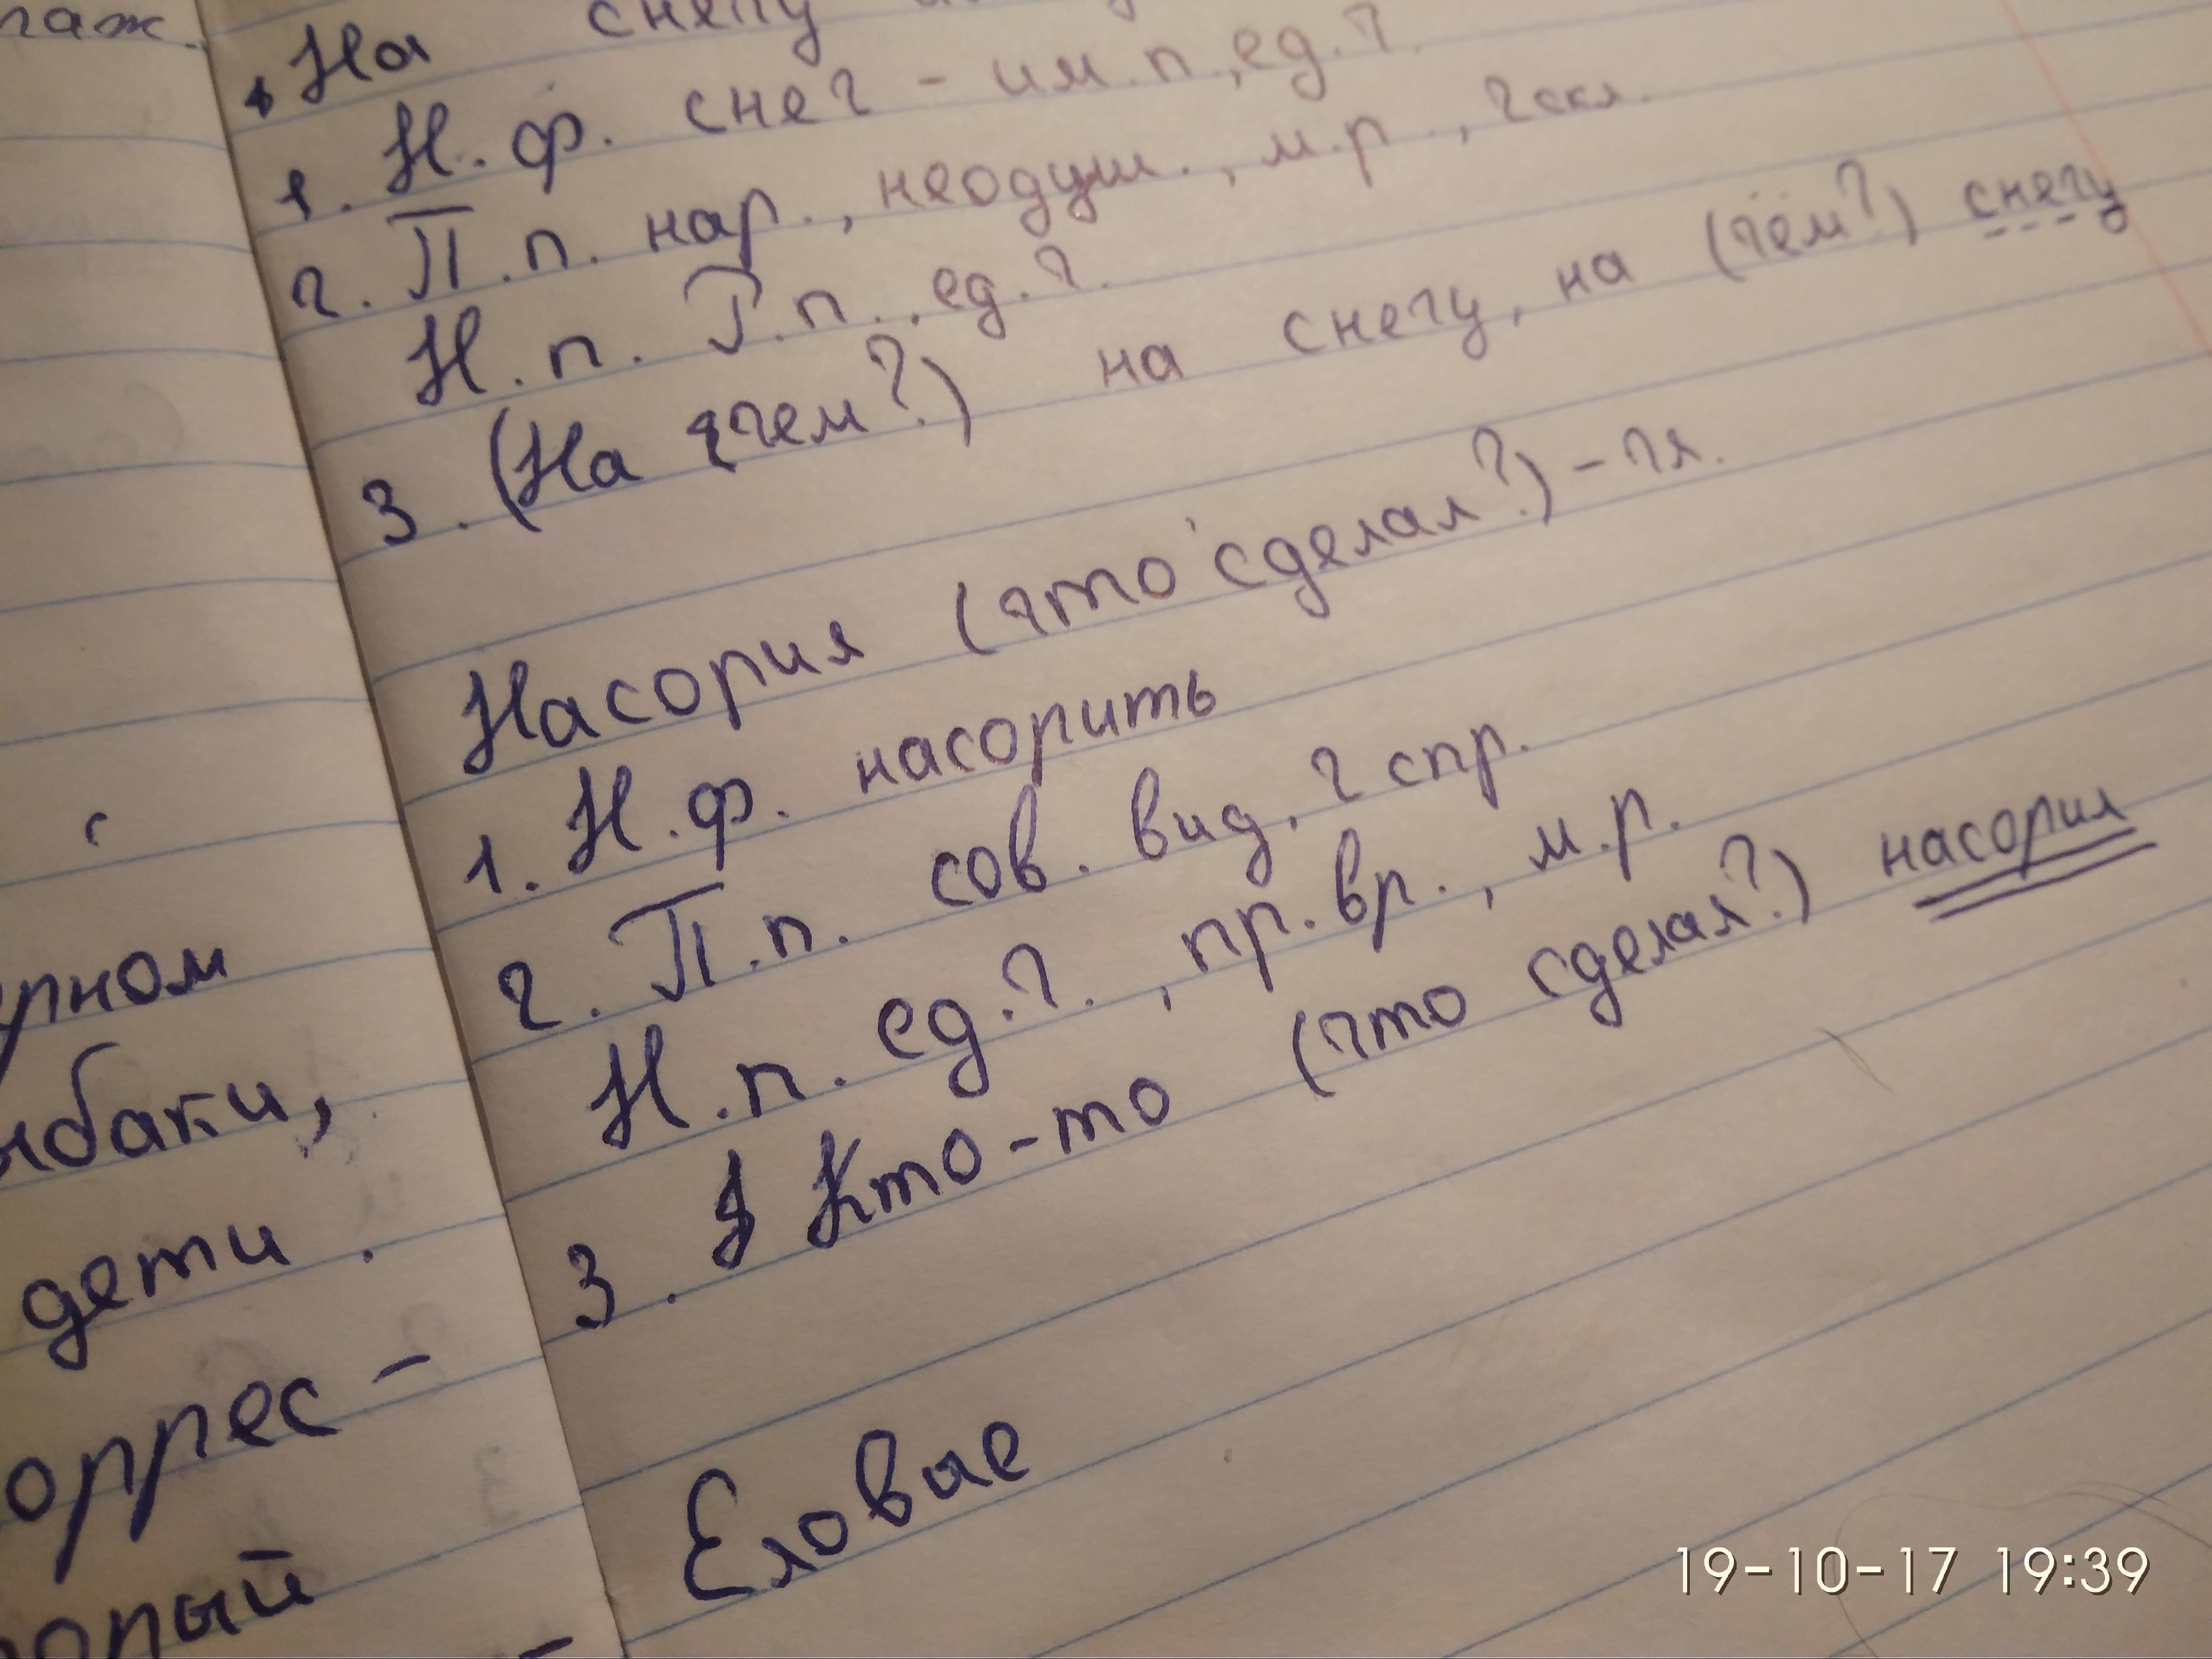 На снегу
1. Н.ф. снег - им.п., ед.ч.
2. П.п. нар., неодуш., м.р., 2 скл.
Н.п. П.п., ед.ч.
3. (На чем?) на снегу, на (чём?) снегу
Насорил (что сделал?) - гл.
1. Н.ф. насорить
2. П.п. сов. вид, 2 спр.
Н.п. ед.ч., пр.вр., м.р.
3. Кто-то (что сделал?) насорил
Еловые
рном
баки,
дети.
оррес-
19-10-17 19:39